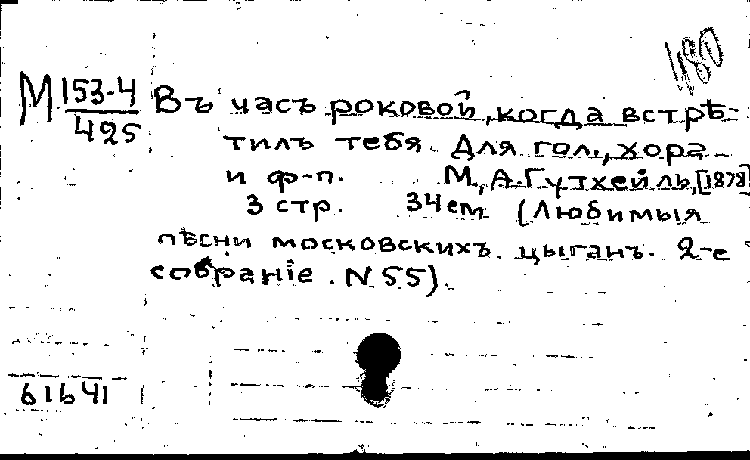 480
М 153-4 Въ часъ роковой, когда встрѣ-
425
тилъ тебя. Для гол., хора
и ф-п. М., А. Гутхейль, [1878]
3 стр. 34см (Любимыя
пѣсни московскихъ цыганъ. 2-е
собраніе. N 55).
61641